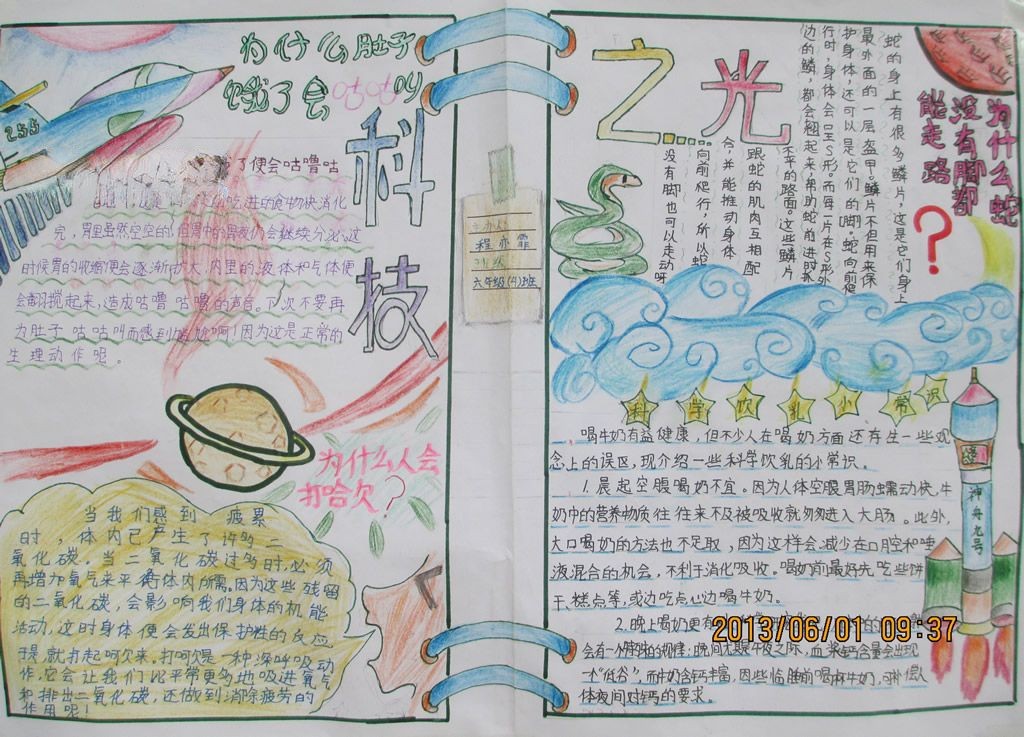 为什么肚子
饿了会咕咕叫
科
技
了便会咕噜咕
吃进的食物快消化
完，胃里虽然空空的，但胃中的胃液仍会继续分泌。这
时候胃的收缩便会逐渐扩大，内里的液体和气体便
会翻搅起来，造成咕噜咕噜的声音。下次不要再
为肚子咕咕叫而感到尴尬啊！因为这是正常的
生理动作呢。
255
为什么人会
打哈欠？
当我们感到疲累
时，体内已产生了许多二
氧化碳。当二氧化碳过多时，必须
再增加氧气来平衡体内所需。因为这些残留
的二氧化碳，会影响我们身体的机能
活动，这时身体便会发出保护性的反应
于是，就打起呵欠来。打呵欠是一种深呼吸动
作，它会让我们比平常更多地吸进氧气
和排出二氧化碳，还做到消除疲劳的
作用呢！
程亦霏
六年级(4)班
之……光
为什么蛇
没有脚都
能走路
？
蛇的身上有很多鳞片，这是它们身上
最外面的一层盔甲。鳞片不但用来保
护身体，还可以是它们的脚。蛇向前爬
行时，身体会呈S形。而每一片在S形外
边的鳞，都会翘起来，帮助蛇前进时抓
不平的路面。这些鳞片
跟蛇的肌肉互相配
合，并能推动身体
向前爬行，所以蛇
没有脚也可以走动呀
科学饮乳小常识
喝牛奶有益健康，但不少人在喝奶方面还存在一些观
念上的误区，现介绍一些科学饮乳的小常识。
1.晨起空腹喝奶不宜。因为人体空腹胃肠蠕动快，牛
奶中的营养物质往往来不及被吸收就匆匆进入大肠。此外，
大口喝奶的方法也不足取，因为这样会减少在口腔和唾
液混合的机会，不利于消化吸收。喝奶前最好先吃些饼
干、糕点等，或边吃点心边喝牛奶。
2.晚上喝奶更有
会有一个特殊的规律：晚间尤其午夜之际，血浆钙含量会出现
一个“低谷”，而牛奶含钙丰富，因些临睡前喝杯牛奶，可补偿人
体夜间对钙的要求。
神舟九号
2013/06/01 09:37